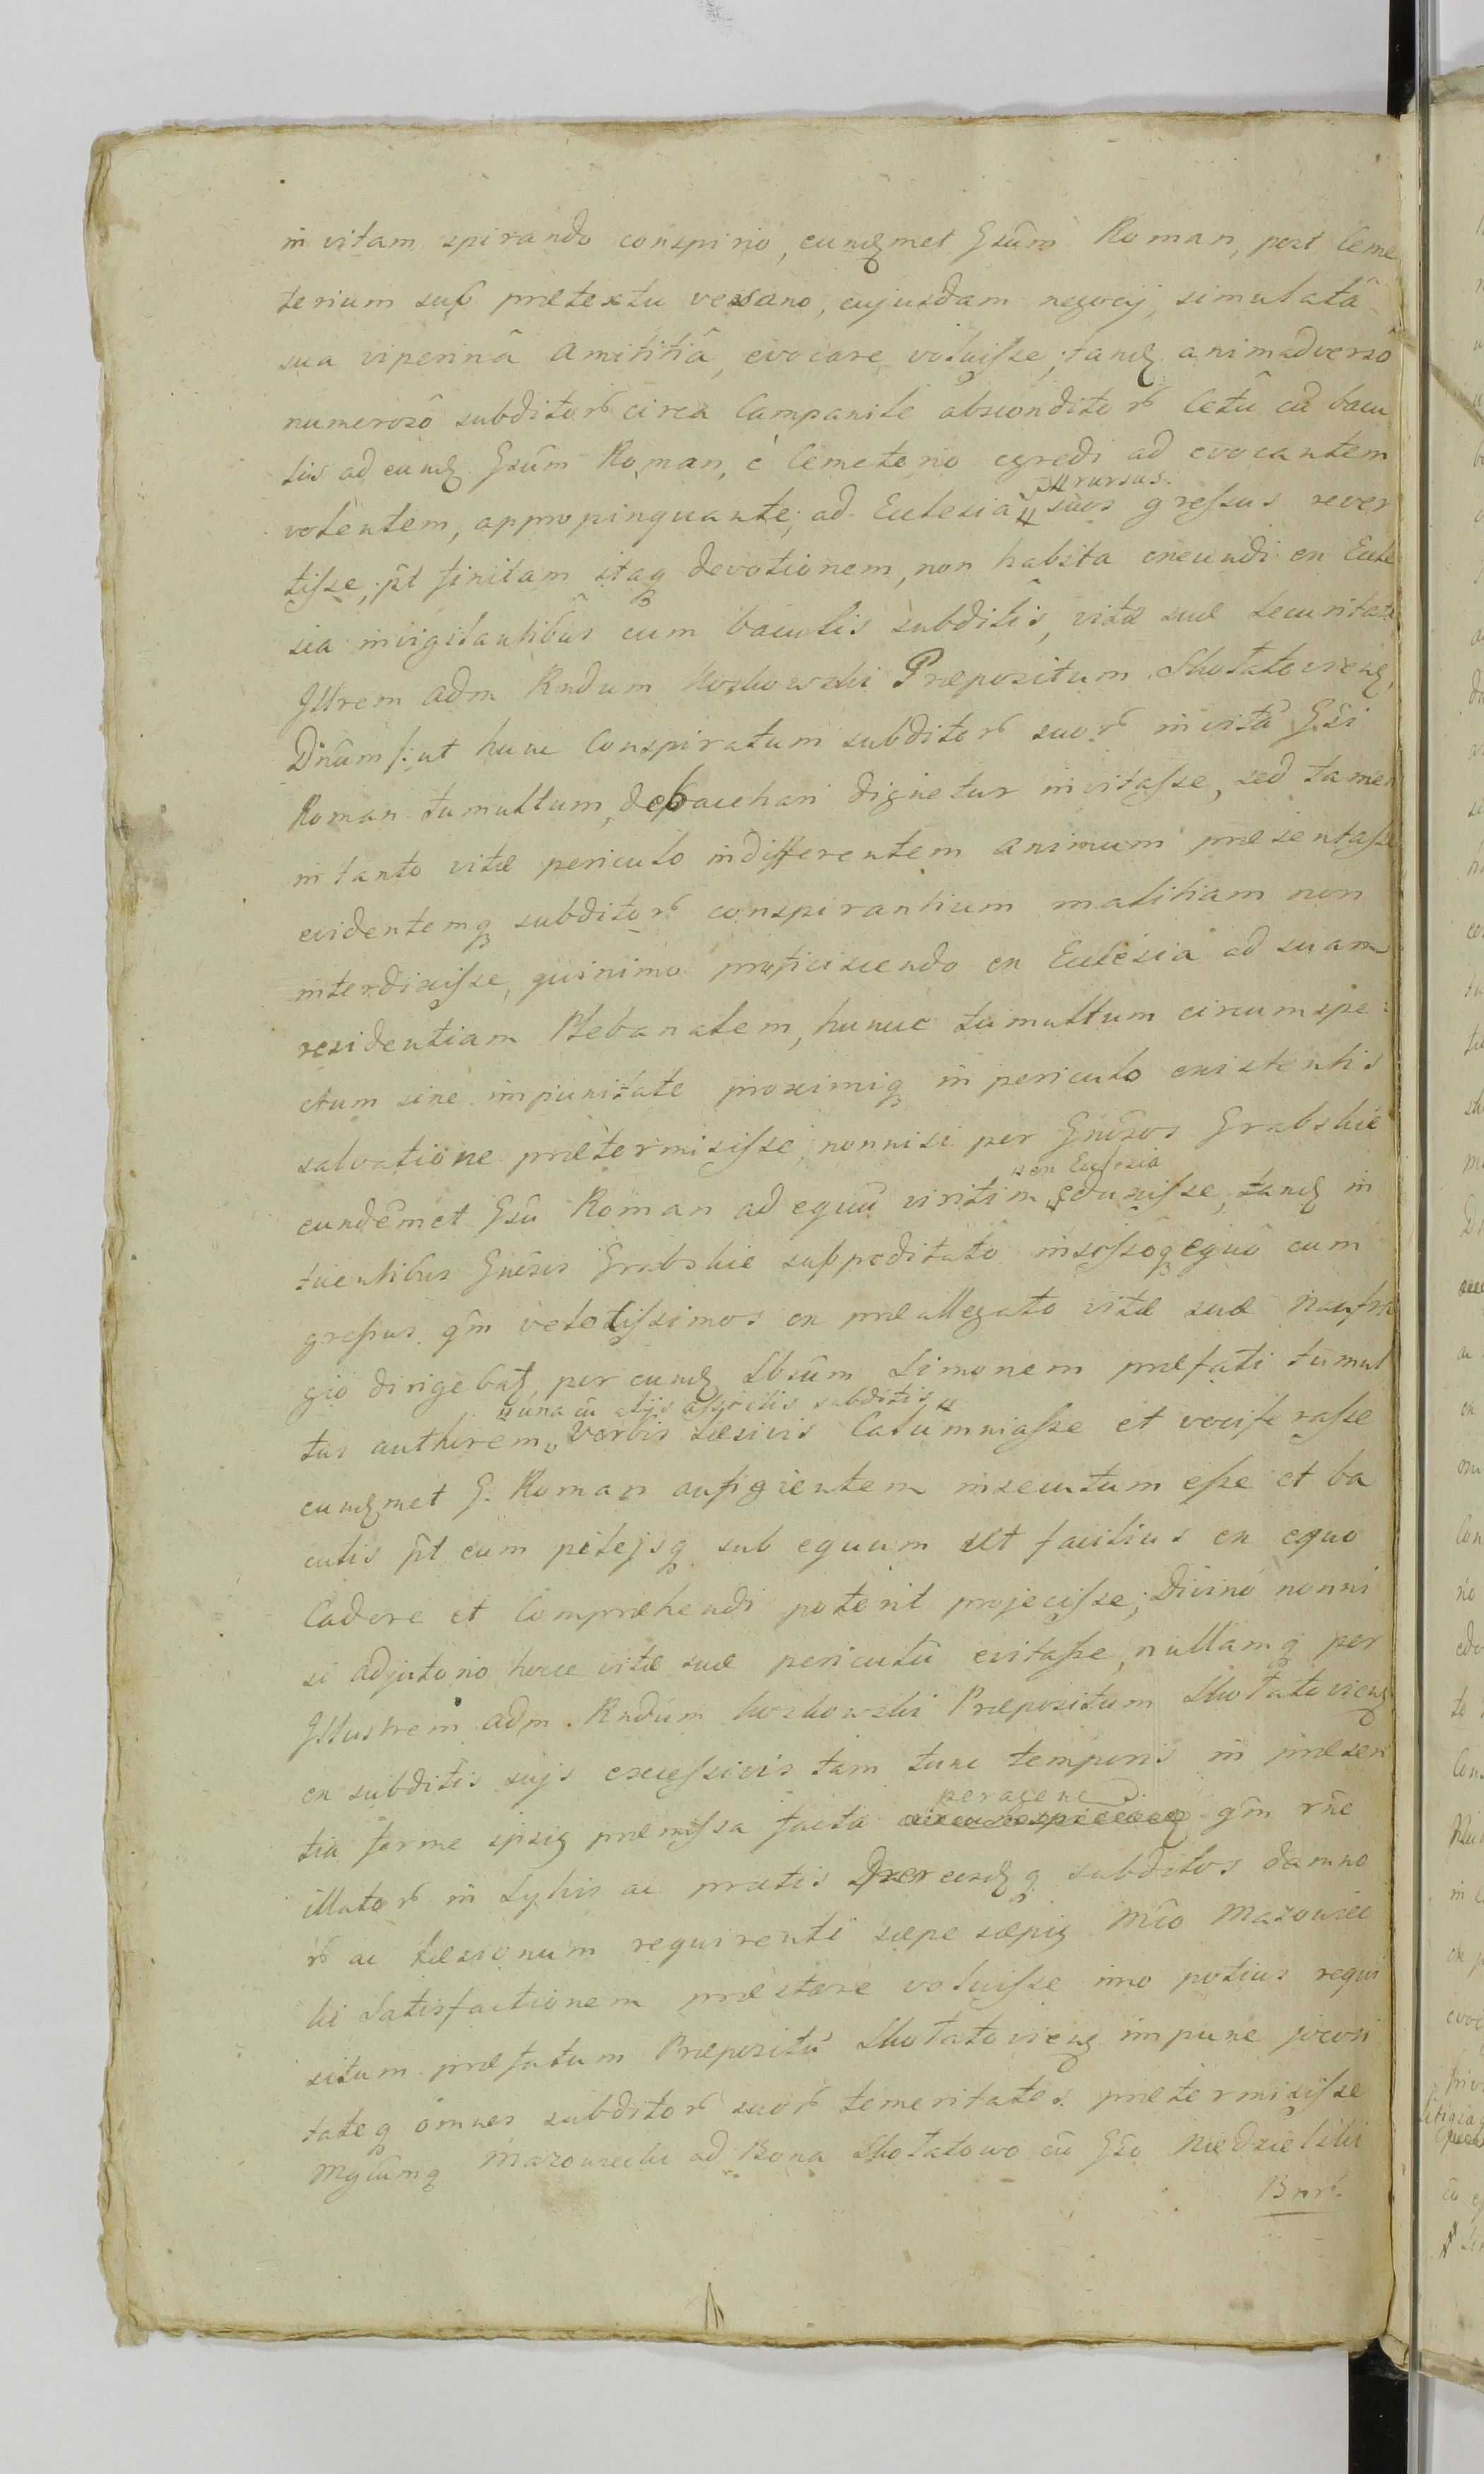 in vitam spirando conspirio, eundmet Gsûm Roman, post Ceme
terium sub prætextu vesano, cujusdam negocij, simulatâ
sua viperinâ Amititiâ, evocare voluisse; tandz animadverso
numerosô subditorū circa Campanile absconditorū Cetû cū bacu
lis ad eundz Gsûm Roman, è Cemeterio egredi ad evocantem
volentem, appropinquante; ad Eclesiā rursus suos gressus rever
tisse; pt finitam itaq devotionem, non habita exeundi ex Ecle
sia invigilantibus cum baculis subditis, vitæ suæ securitate
Jllrem Adm Rndum Koskowski Præpositum Skotatoviens,
Dnūm /: ut hunc Conspiratum subditorū suorū in vitā Gsi
Roman tumultum, debacchari dignetur invitasse, sed tamen
in tanto vitæ periculo indifferentem animum præsentasse
evidentemq subditorū conspirantium malitiam non
interdixisse, quinimo proficiscendo ex Eclesia ad suam
residentiam Plebanalem, hunuc tumultum circumspe:
ctum sine impunitate proximiq in periculo existentis
salvatione prætermisisse, nonnisi per Gnêros Grabskie
eundêmet Gsū Roman ad equū viritim ex Eclesia eduxisse, tandz in
tuentibus Gnêris Grabskie suppeditatô insessôq equô cum
gressus qm velotissimos ex præallegato vitæ suæ naufra
gio dirigebat, per eundz Sbsûm Simonem præfati tumul
tus authorem, una cū alijs asseclis subditis Verbis Læsivis Calumniasse et vociferasse
eundzmet G. Roman aufigientem insecutum esse et ba
culis pt eum pilejsq sub equum ut facilius ex equo
Cadere et Compræhendi poterit projecisse; Divinô nonni
si Adjutorio hocce vitæ suæ periculū evitasse, nullamq per
Jllustrem adm. Rndum Koskowski Præpositum Skotatoviens
ex subditis sujs excessivis tam tunc temporis in præsen
tia ferme ipsiq præmissa facta peragene qm rne
illatorū in Sylvis ac pratis per eosdq subditos damno
rū ac Læsionum requirenti sæpe sæpiq Mfco Mazowiec
ki Satisfactionem præstare voluisse imo potius requi
situm præfatum Præpositū Skotatoviens impune jocosi
tateq omnes subditorū suorū temeritates prætermisisse
Mgcûmq Mazowiecki ad Bona Skotatowo cū Gso Niedzielski
Bnrū